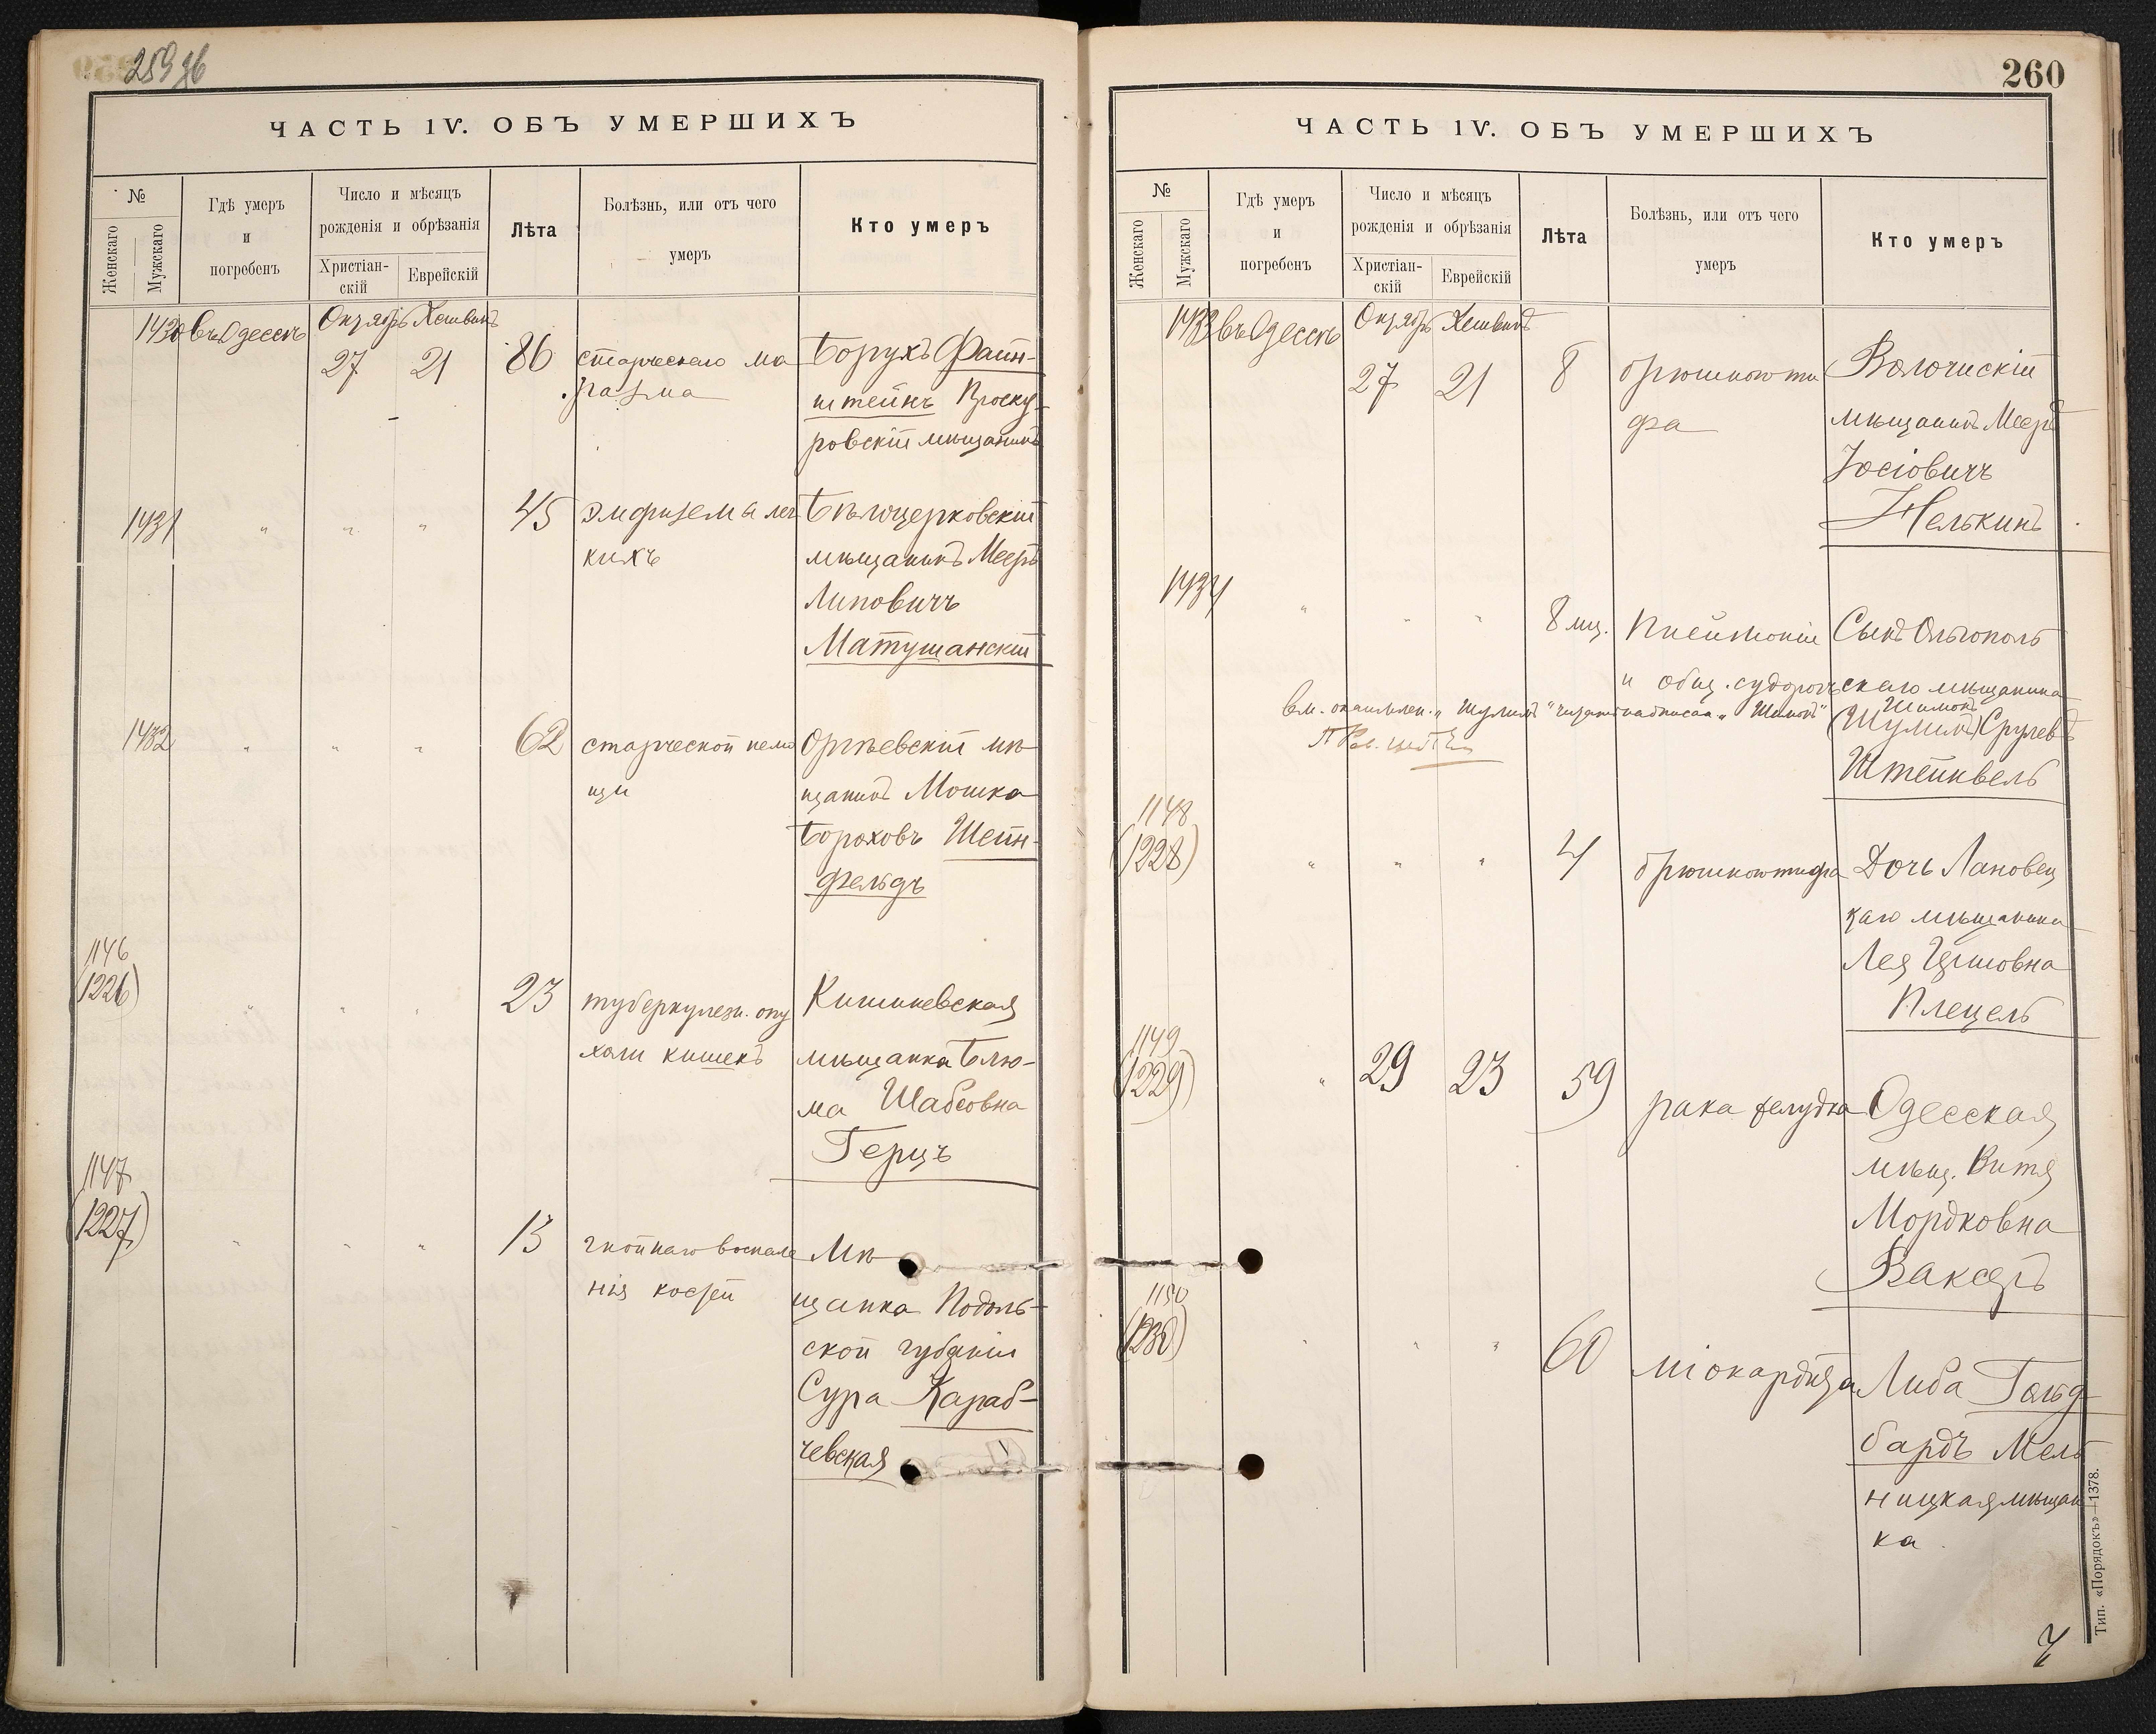 259 об
ЧАСТЬ IV. ОБЪ УМЕРШИХЪ
№
Женскаго
Мужскаго
Гдѣ умеръ
и
погребенъ
Число и мѣсяцъ
рожденія и обрѣзанія
Христіан-
скій
Еврейскій
Лѣта
Болѣзнь, или отъ чего
умеръ
Кто умеръ
1430 въ Одессѣ Октябрь Хешванъ
27 21 86 старческаго ма Борухъ Файн-
разма штейнъ Проску-
ровскій мѣщанинъ
1431 " " " 45 эмфизема лег Бѣлоцерковскій
кихъ мѣщанинъ Мееръ
Липовичъ
Матушанскій
1432 " " " 62 старческой немо Оргѣевскій мѣ
щи щанинъ Мошка
Бороховъ Шейн-
фельдъ
1146
(1226) " " " 23 туберкулезн. опу Кишиневская
холи кишекъ мѣщанка Блю-
ма Шабсовна
Герцъ
1147
(1227) " " " 13 гнойнаго воспале Мѣ
нія костей щанка Подоль-
ской губерніи
Сура Караб-
чевская
260
ЧАСТЬ IV. ОБЪ УМЕРШИХЪ
№
Женскаго
Мужскаго
Гдѣ умеръ
и
погребенъ
Число и мѣсяцъ
рожденія и обрѣзанія
Христіан-
скій
Еврейскій
Лѣта
Болѣзнь, или отъ чего
умеръ
Кто умеръ
1433 въ Одессѣ Октябрь Хешванъ
27 21 8 брюшного ти Волочискій
фа мѣщанинъ Мееръ
Іосіовичъ
Нелькинъ
1434 " " " 8 мц. Пнеймоніи Сынъ Ольгополь
и общ. судорогъ скаго мѣщанина
Шимонъ
вм. "Шулимъ" читать надписан. "Шимонъ" (Шулимъ) Срулевъ
Штейнвель
1148
(1228) " " " 4 брюшного тифа Дочь Лановец
каго мѣщанина
Лея
Плецель
1149
(1229) " 29 23 59 рака желудка Одесская
мѣщ. Витя
Мордковна
Ваксеръ
1150
(1230) " " " 60 міокардита Либа Гольд
бардъ Мель
ницкая мѣщан
ка
Тип. «Порядокъ»—1378.